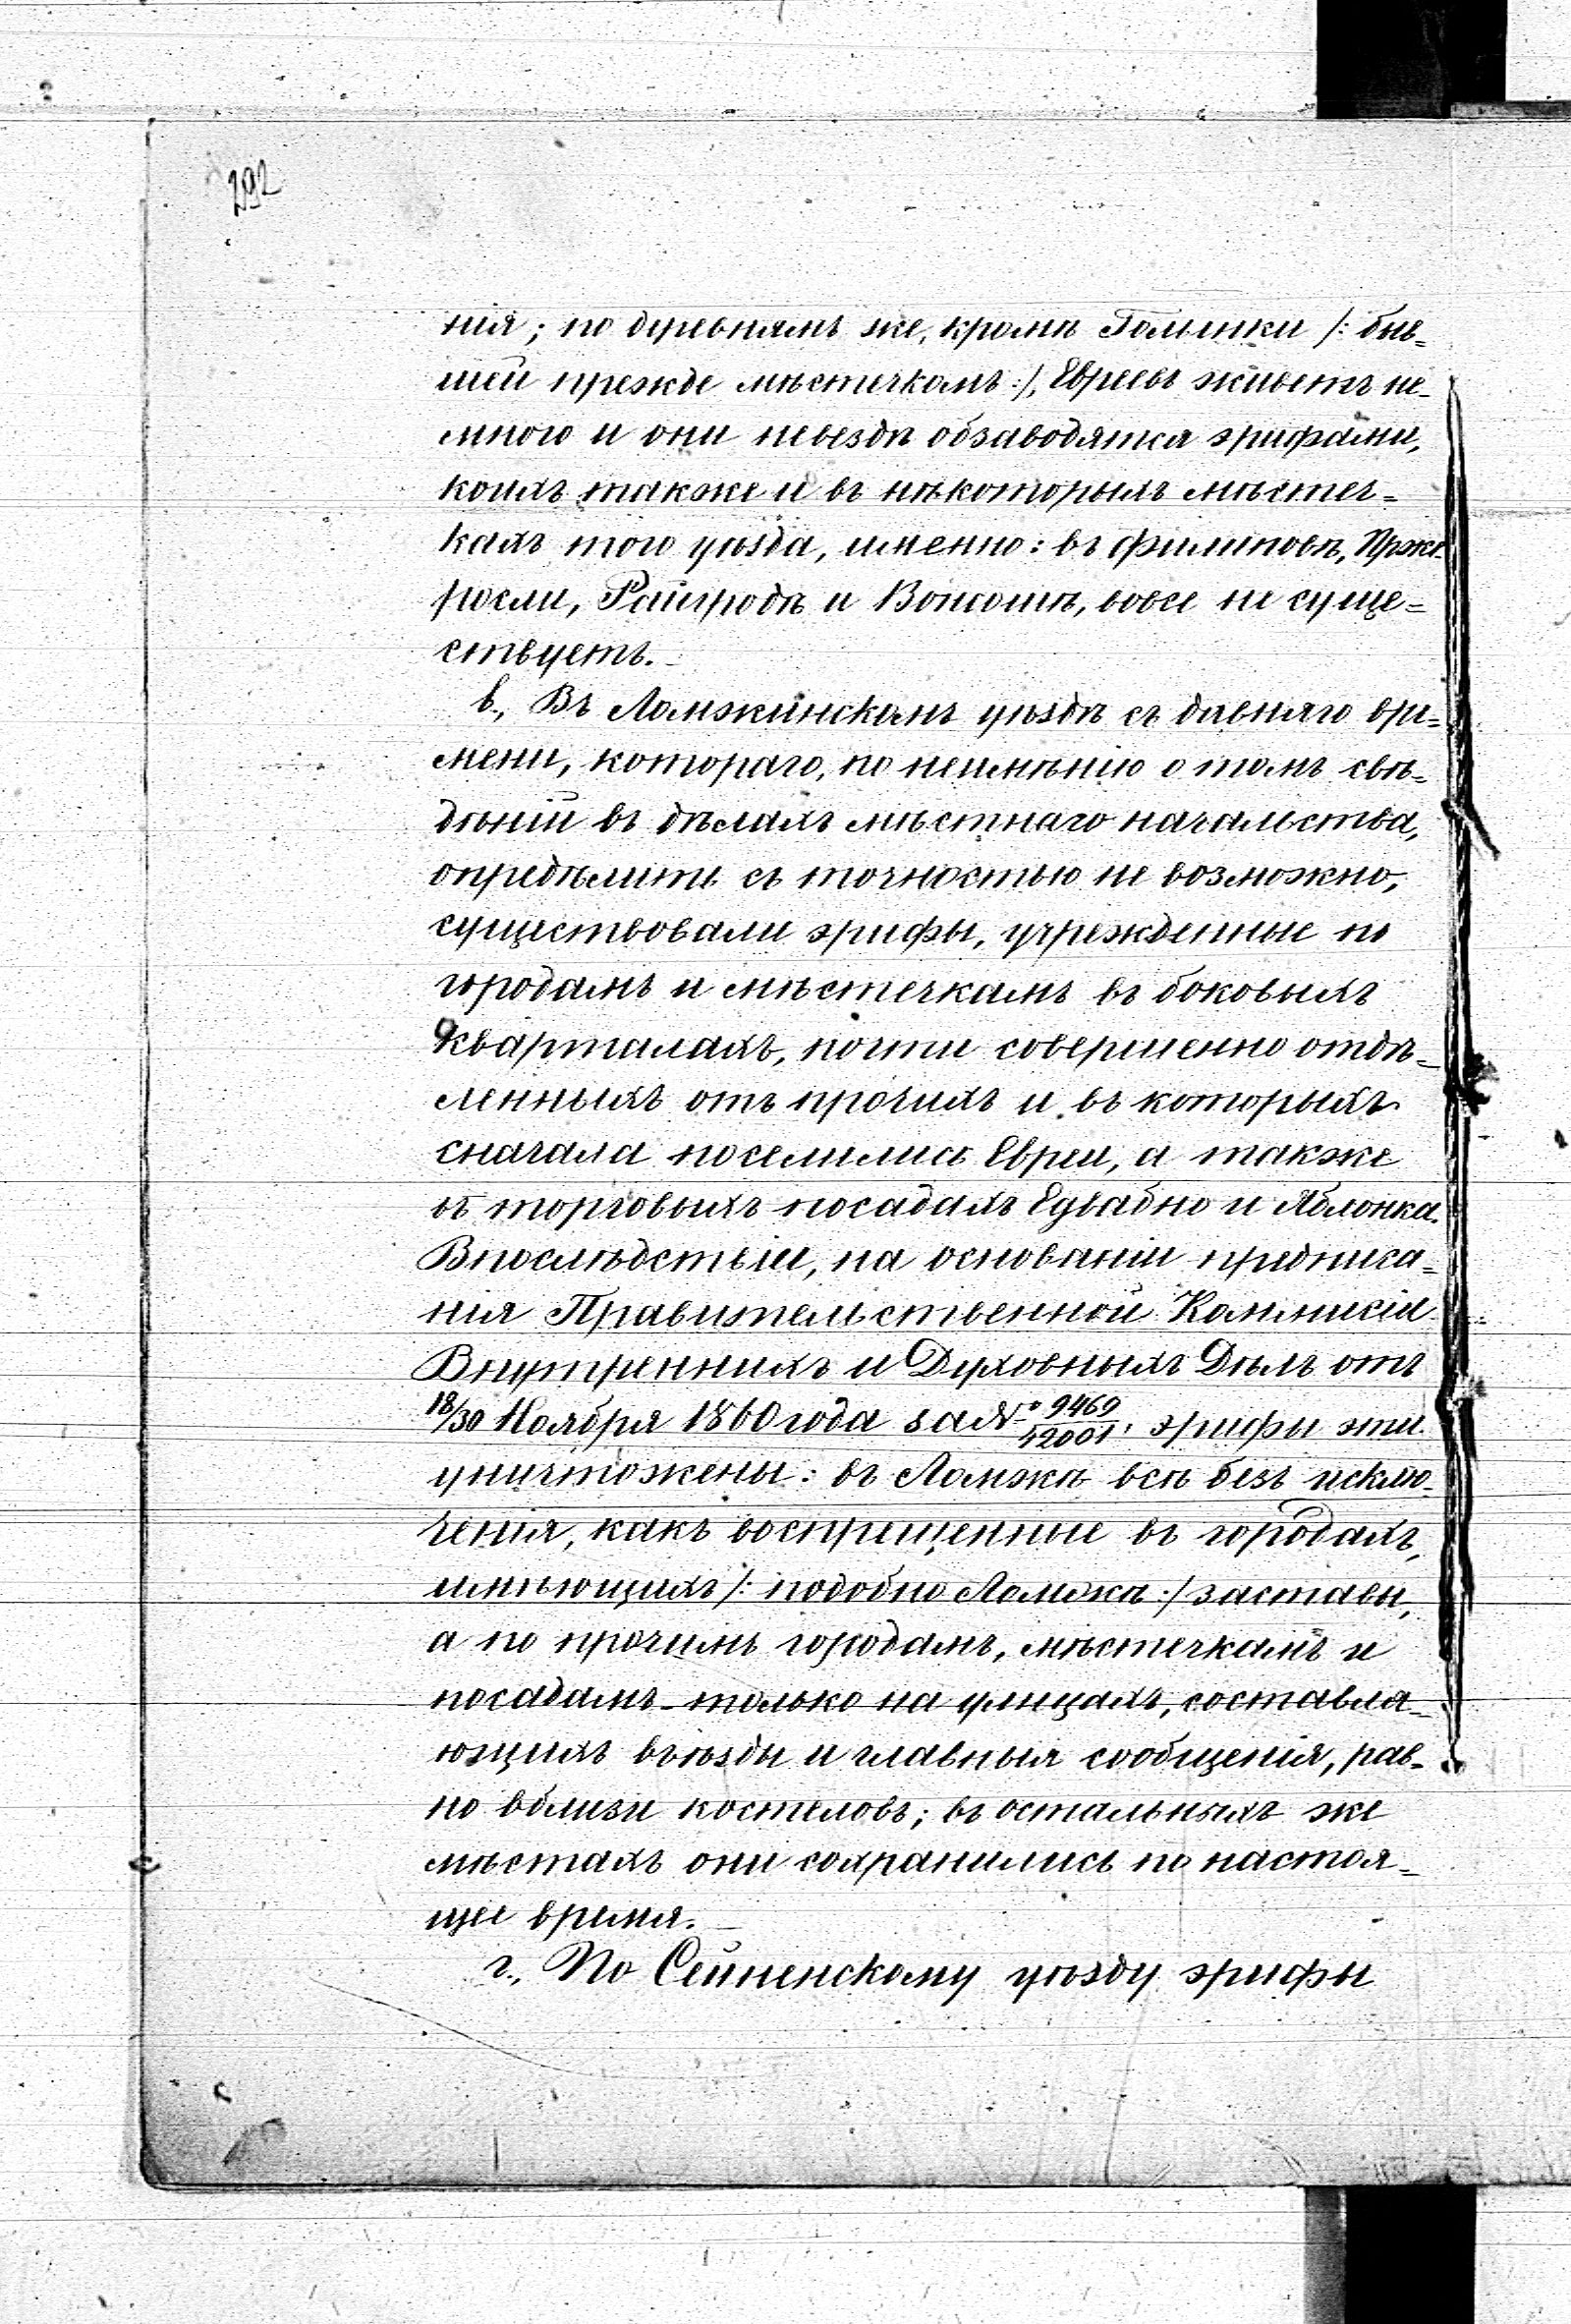 292
нія; по деревнямъ же, кромѣ Голынки /: быв=
шей прежде мѣстечкомъ :/, Евреевъ живетъ не-
много и они невездѣ обзаводятся эрифами,
коихъ также и въ нѣкоторыхъ мѣстеч=
кахъ того уѣзда, именно: въ Филиповѣ, Прже-
росли, Райгродѣ и Вонсошѣ, вовсе не суще=
ствуетъ.-
в., Въ Ломжинскомъ уѣздѣ съ давняго вре=
мени, котораго, по неимѣнію о томъ свѣ=
дѣній въ дѣлахъ мѣстнаго начальства,
опредѣлить съ точностью не возможно,
существовали эрифы, учрежденные по
городамъ и мѣстечкамъ въ боковыхъ
кварталахъ, почти совершенно отдѣ=
ленныхъ отъ прочихъ и въ которыхъ
сначала поселились Евреи, а также
въ торговыхъ посадахъ Едвабно и Яблонка.
Впослѣдствіи, на основаніи предписа=
нія Правительственной Коммисіи
Внутреннихъ и Духовныхъ Дѣлъ отъ
18/30 Ноября 1860 года за № 9469/42001, эрифы эти
уничтожены: въ Ломжѣ всѣ безъ исклю-
ченія, какъ воспрещенные въ городахъ,
имѣющихъ /: подобно Ломжѣ :/ заставы,
а по прочимъ городамъ, мѣстечкамъ и
посадамъ - только на улицахъ, составля=
ющихъ въѣзды и главныя сообщенія, рав-
но вблизи костеловъ; въ остальныхъ же
мѣстахъ они сохранились по настоя=
щее время.-
г., По Сейненскому уѣзду эрифы